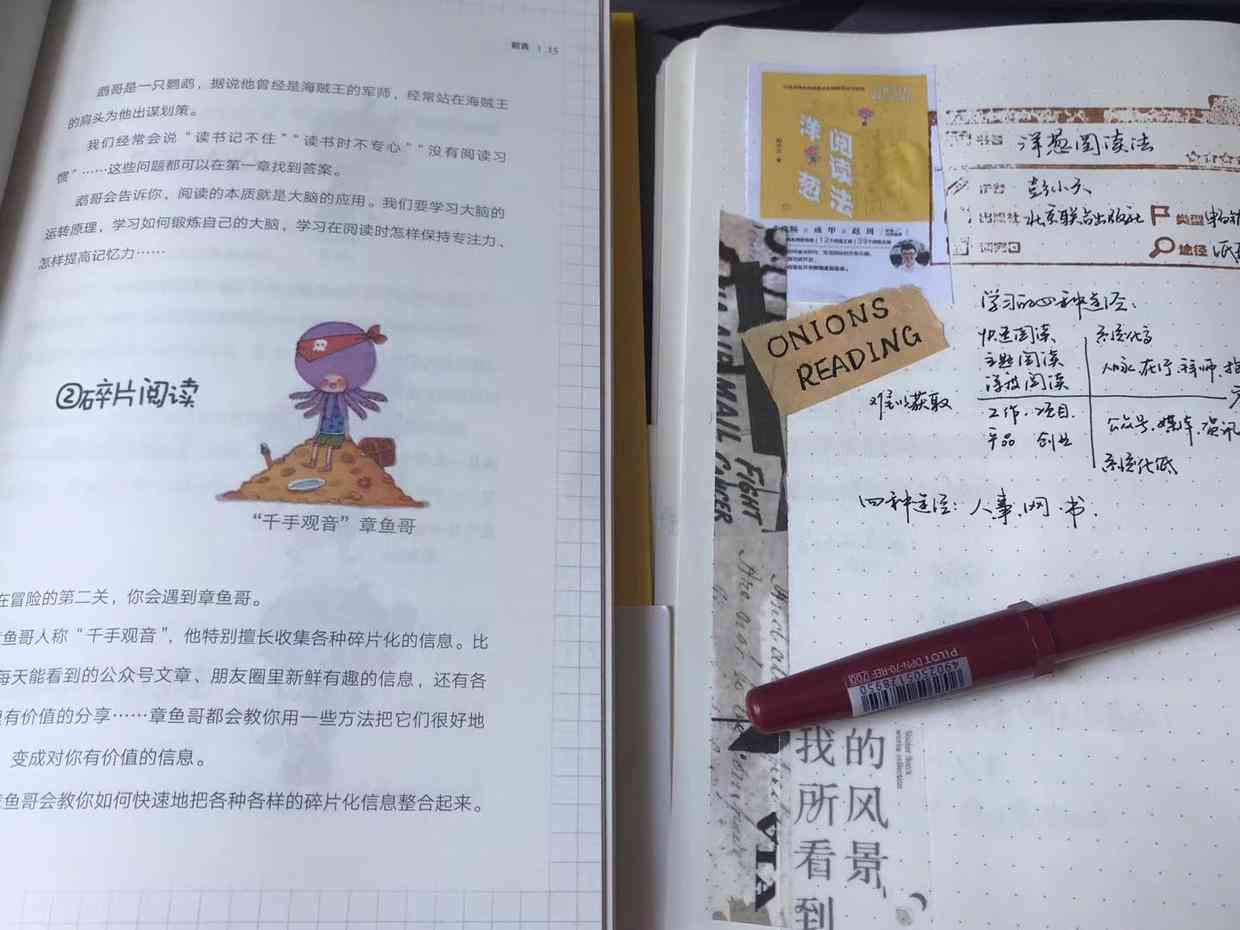 前言 | 15
鹉哥是一只鹦鹉，据说他曾经是海贼王的军师，经常站在海贼王
的肩头为他出谋划策。
我们经常会说“读书记不住”“读书时不专心”“没有阅读习
惯”……这些问题都可以在第一章找到答案。
鹉哥会告诉你，阅读的本质就是大脑的应用。我们要学习大脑的
运转原理，学习如何锻炼自己的大脑，学习在阅读时怎样保持专注力、
怎样提高记忆力……
②碎片阅读
“千手观音”章鱼哥
在冒险的第二关，你会遇到章鱼哥。
鱼哥人称“千手观音”，他特别擅长收集各种碎片化的信息。比
每天能看到的公众号文章、朋友圈里新鲜有趣的信息，还有各
有价值的分享……章鱼哥都会教你用一些方法把它们很好地
变成对你有价值的信息。
鱼哥会教你如何快速地把各种各样的碎片化信息整合起来。
洋葱
阅读法
成甲 赵周
ONIONS
READING
AIR MAIL
FIGHT
CANCER
VIA
书名 洋葱阅读法
作者 彭小六
出版社 北京联合出版社 类型
途径
学习的四种途径:
快速阅读
主题阅读
系统化高
难以获取
工作.项目.
产品 创业
公众号.媒体.资讯
系统化低
四种途径: 人.事.网.书.
PILOT DPN-70-REF [200]
4902505128950
的风景
我所看到